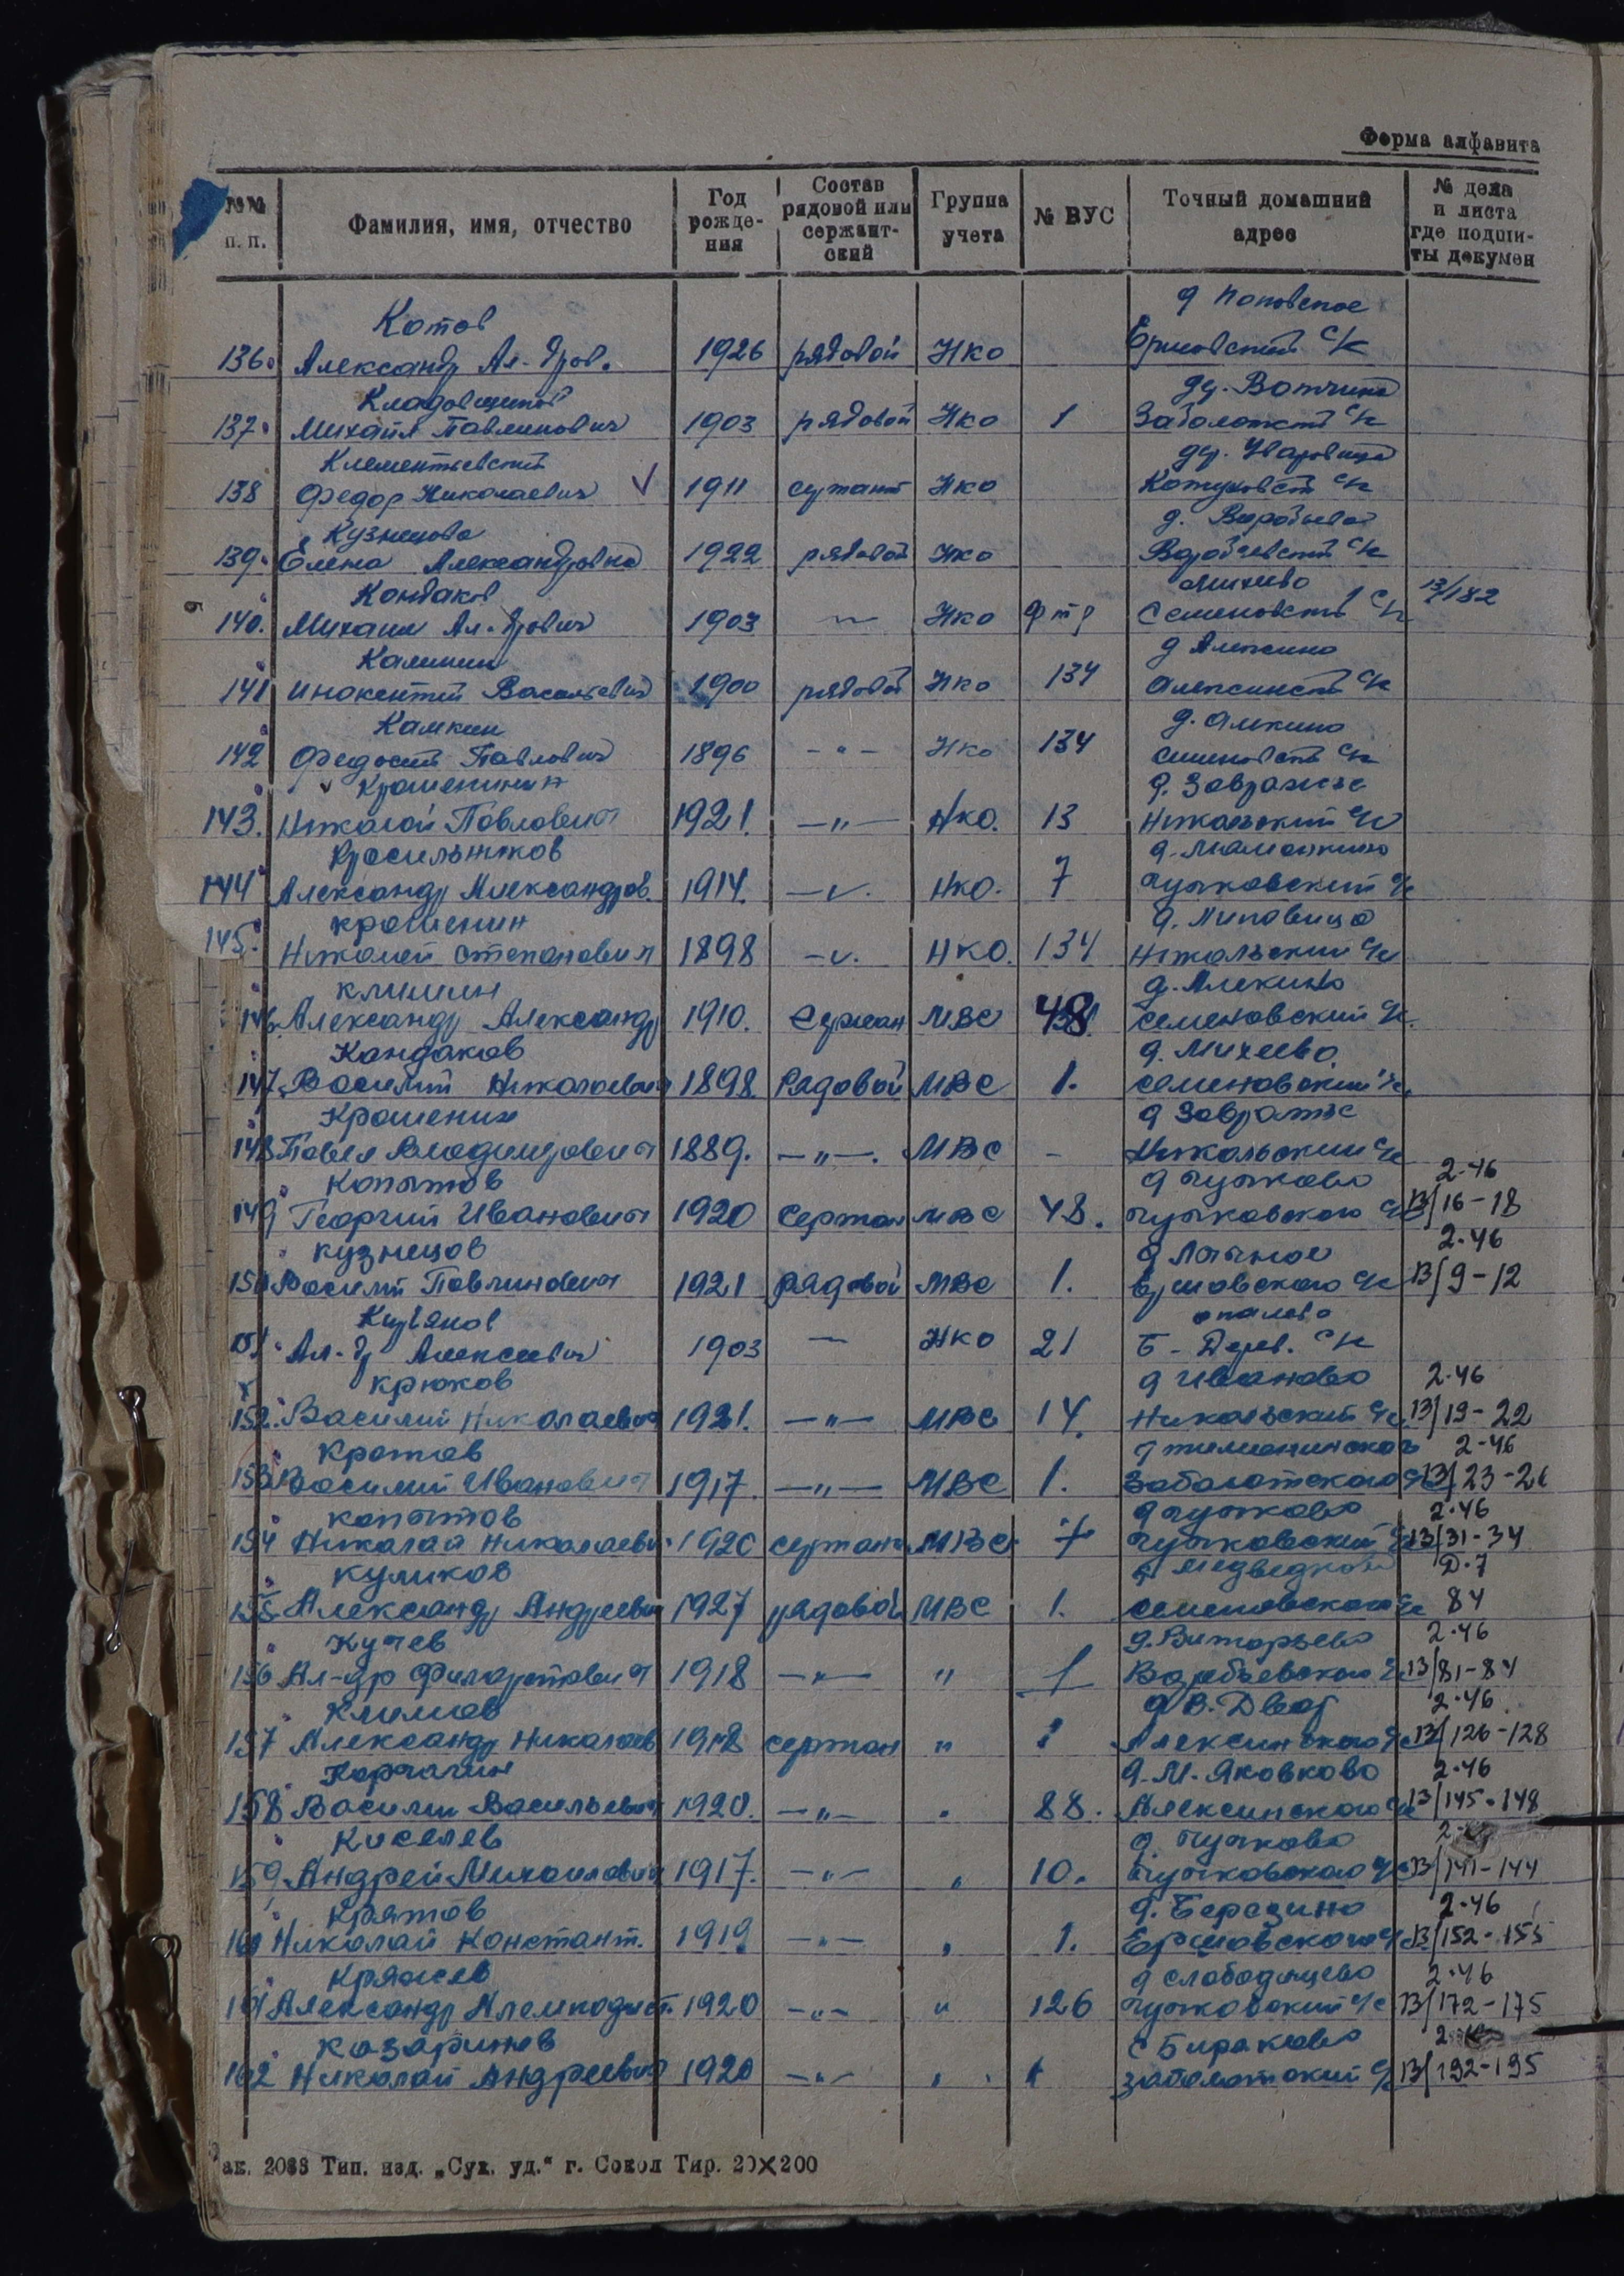 Форма алфавита
№№ п. п. Фамилия, имя, отчество Год рожде-ния Состав рядовой или сержант-ский Группа учета № ВУС Точный домашний адрес № дела и листа где подши-ты докумен
Котов д Поповское
136. Александр Ал-дров. 1926 рядовой НКО Ершовский с/с
Кладовщиков дер. Вотчина
137. Михаил Павлинович 1903 рядовой НКО 1 Заболотский с/с
Клементьевский дер.
138 Федор Николаевич 1911 сержант НКО с/с
Кузнецова д.
139. Елена Александровна 1922 рядовой НКО Воробьевский с/с
Кондаков Михеево 13/182
140. Михаил Ал-дрович 1903 — НКО Семеновский с/с
Калинин д Алексино
141 Инокентий Васильевич 1900 рядовой НКО 134 Алексинский с/с
Камкин д. Алекино
142 Федосий Павлович 1896 -"- НКО 134 Семеновский с/с
Крашенинин д. Завражье
143. Николай Павлович 1921. —"— НКО. 13 Никольский с/с
Красильников д.
144 Александр Александров. 1914. —"— НКО. 7 Чучковский с/с
Крошенин д. Липовица
145. Николай Степанович 1898 —"— НКО. 134 Никольский с/с
Климин д. Алекино
146. Александр Александр 1910. Сержан МВС 48. Семеновский с/с.
Кондаков д. Михеево
147. Василий Николаевич 1898. Рядовой МВС 1. Семеновский с/с.
Крошенин д Завражье
148 Павел Владимирович 1889. —"—. МВС - Никольский с/с
Копытов д Чучково 2-46
149 Георгий Иванович 1920 Сержан МВС 48. Чучковского с/с 13/16-18
Кузнецов д 2-46
150 Василий Павлинович 1921 Рядовой МВС 1. Ершовского с/с 13/9-12
Опалево
151. Ал-др Алексеевич 1903 — НКО 21 Б-Дерев. с/с
Крюков д Иваново 2-46
152. Василий Николаевич 1921. —"— МВС 14. Никольский с/с 13/19-22
Кротов д 2-46
153 Василий Иванович 1917. —"— МВС 1. Заболотского с/с 13/23-26
Копытов д Чучково 2-46
154 Николай Николаеви. 1920 сержан МВС. 7 Чучковский с/с 13/31-34
Куликов д Д-7
155. Александр Андреевич 1927 рядовой МВС 1. Семеновского с/с 84
Кучев д. 2-46
156 Ал-др Филаретович 1918 —"— " 1 Воробьевского с/с 13/81-84
Климов д В. Двор 2-46
157 Александр Николаев 1918 сержан " 1 Алексинского с/с 13/126-128
Корчагин д. М. Яковково 2-46
158 Василий Васильевич 1920. —"— " 88. Алексинского с/с 13/145-148
Киселев д. Чучково
159. Андрей Михайлович 1917. —"— " 10. Чучковского с/с 13/141-144
Кротов д. Березино 2-46
160 Николай Констант. 1919 —"— " 1. Ершовского с/с 13/152-155
Кряжев д Слободищево 2-46
161 Александр 1920 —"— " 126 Чучковский с/с 13/172-175
Казаринов с Бираково
162 Николай Андреевич 1920 —"— " 1 Заболотский с/с 13/192-195
ак. 2088 Тип. изд. „Сух. уд.“ г. Сокол Тир. 20×200